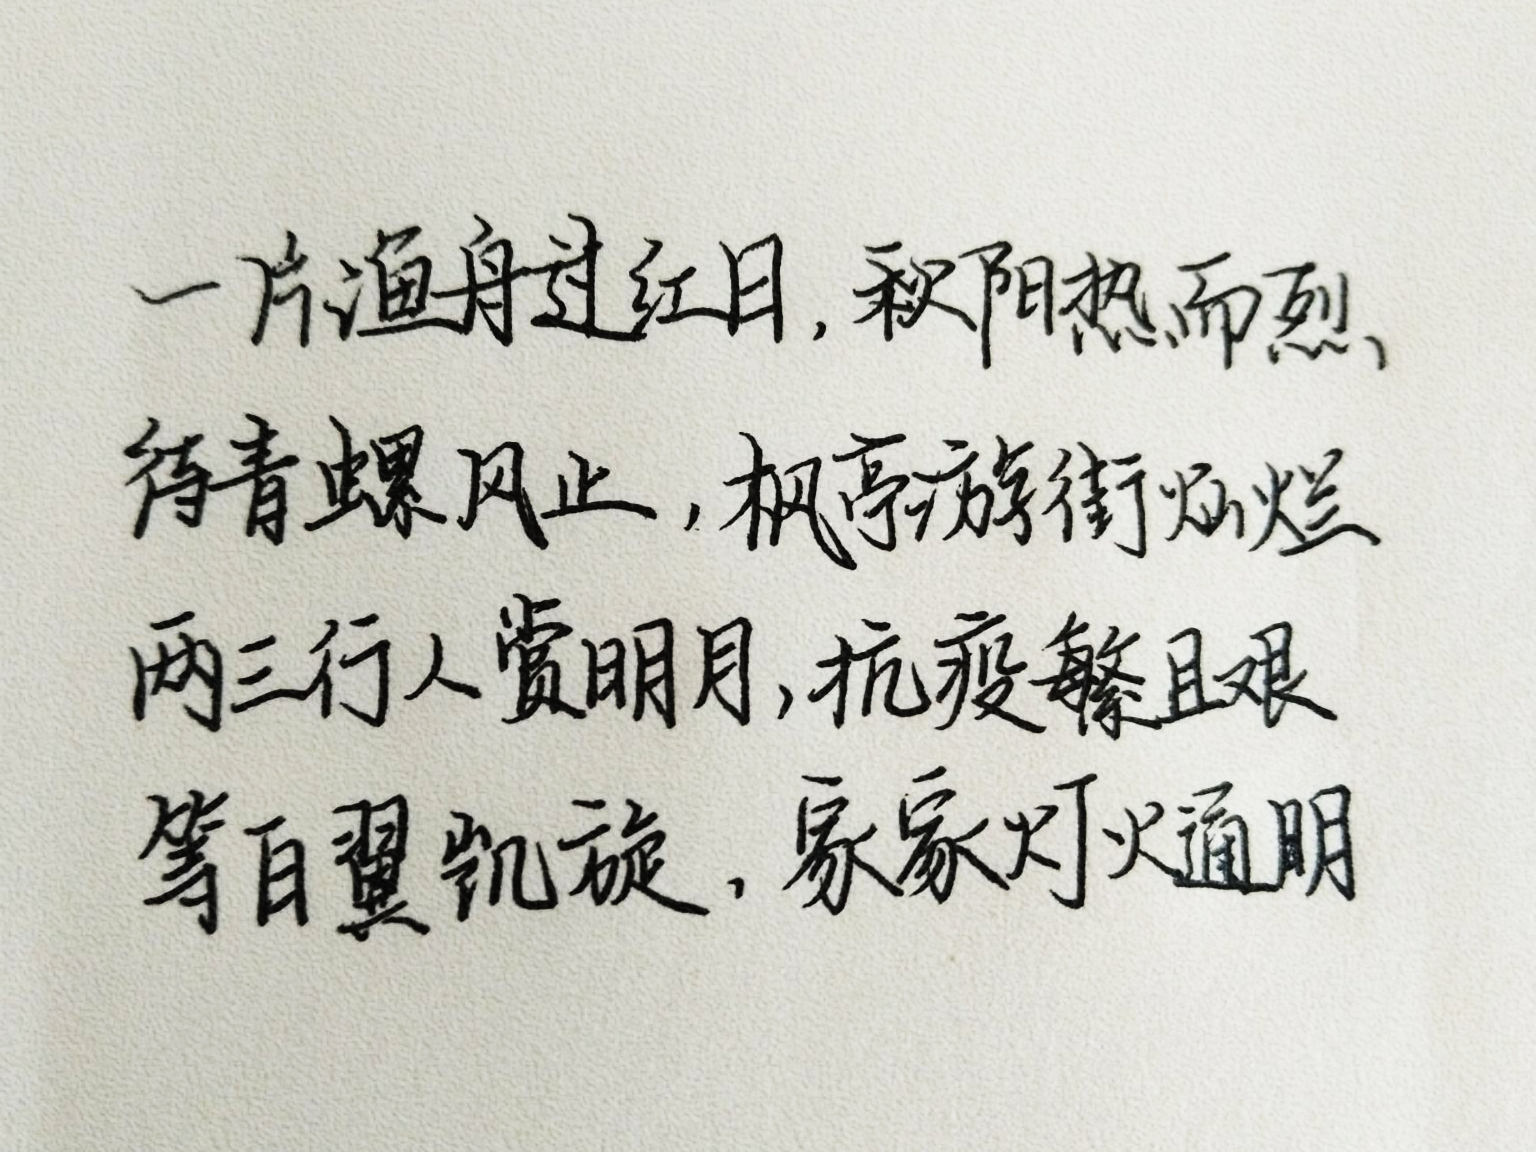 一片渔舟过红日，秋阳热而烈、
待青螺风止，枫亭游街灿烂
两三行人赏明月，抗疫繁且艰
等白翼凯旋，家家灯火通明